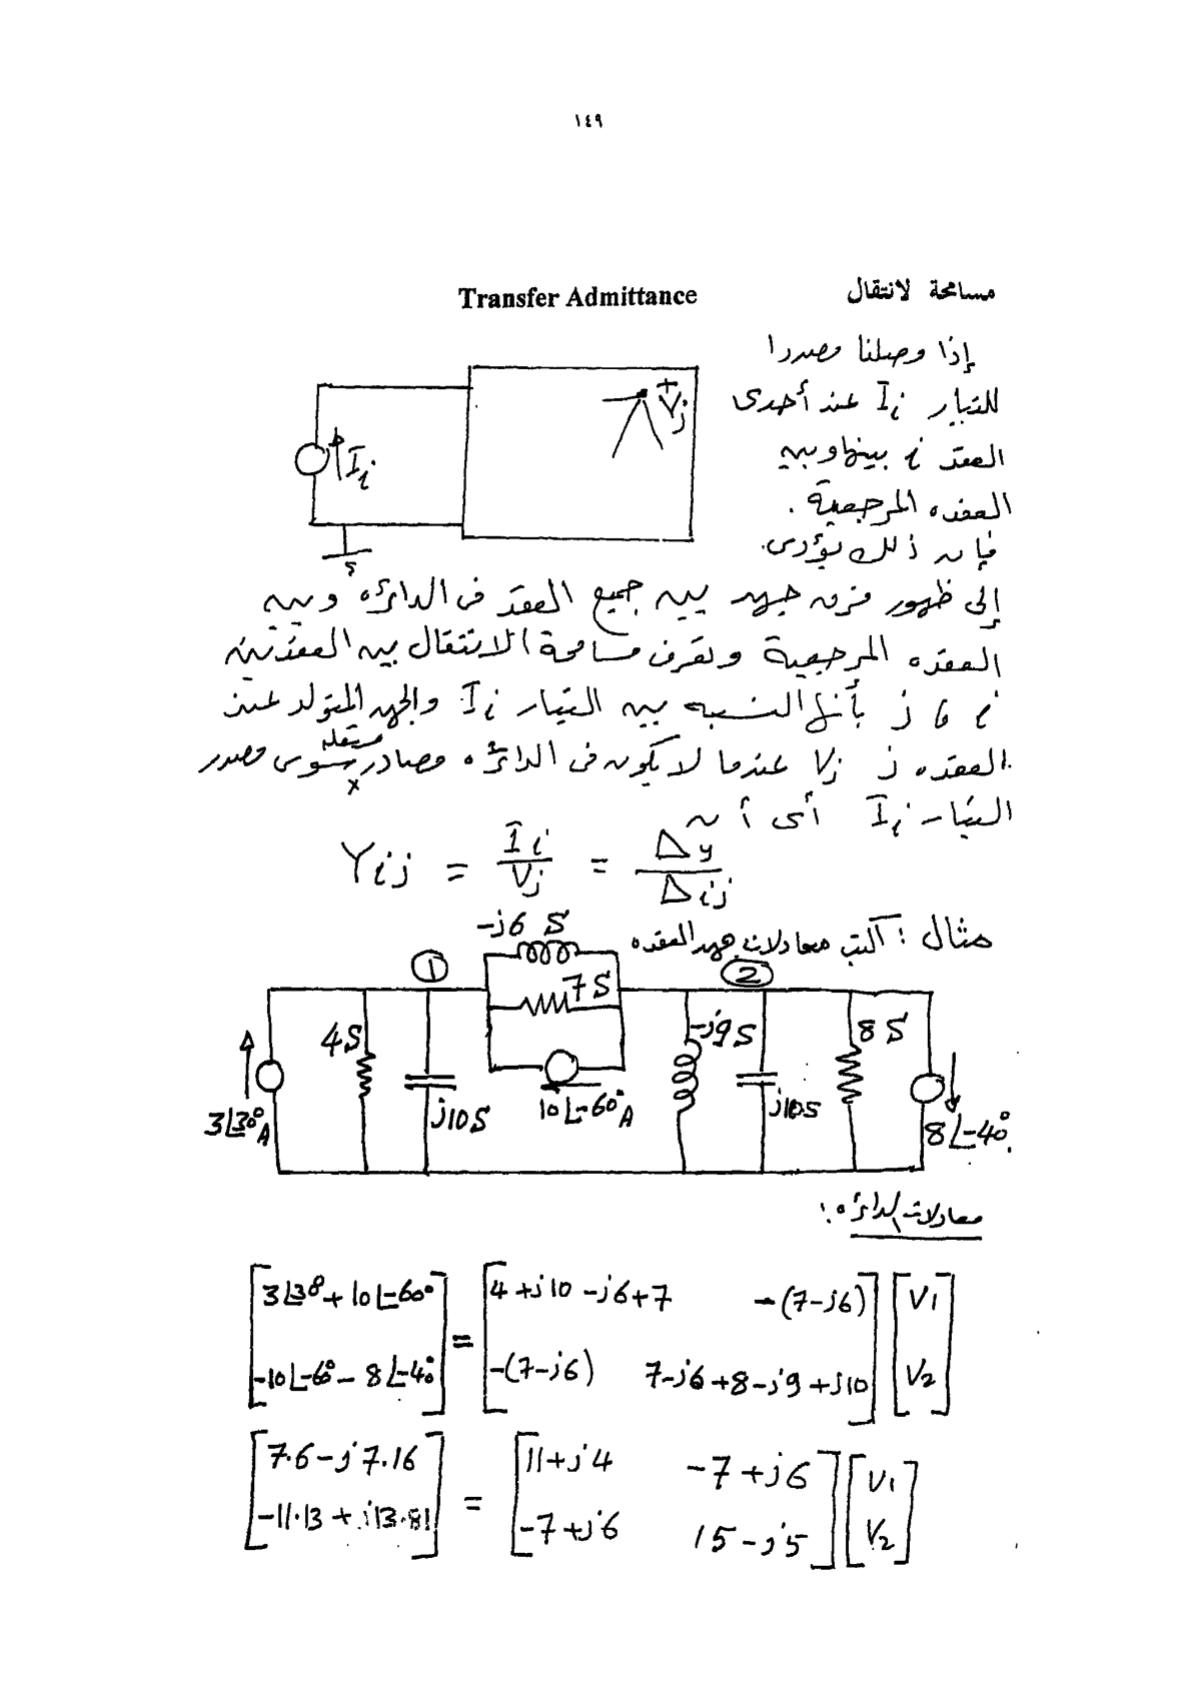 ١٤٩
مسامحة لانتقال Transfer Admittance
إذا وصلنا مصدرا
للتيار Ii عند أحدى
العقد i بينها وبين
العقده المرجعية .
فإن ذلك يؤدى
إلى ظهور فرق جهد بين جميع العقد فى الدائره وبين
العقده المرجعية وتعرف مسامحة الانتقال بين العقدتين
i و j بأنها النسبه بين التيار Ii والجهد المتولد عند
العقده j Vj عندما لا يكون فى الدائره مصادر مستقله سوى مصدر
التيار Ii أى أن
+
Vj
Ii
Yij = Ii/Vj = Δy/Δij
مثال : أكتب معادلات جهد العقده
-j6 S
① ②
7S
4S -j9S 8S
j10S 10∠-60° A j10S
3∠30° A 8∠-40°
معادلات الدائره :
[3∠30° + 10∠-60°] = [4+j10-j6+7 -(7-j6)] [V1]
[-10∠-60° - 8∠-40°] [-(7-j6) 7-j6+8-j9+j10] [V2]
[7.6-j7.16] = [11+j4 -7+j6] [V1]
[-11.13+j13.81] [-7+j6 15-j5] [V2]